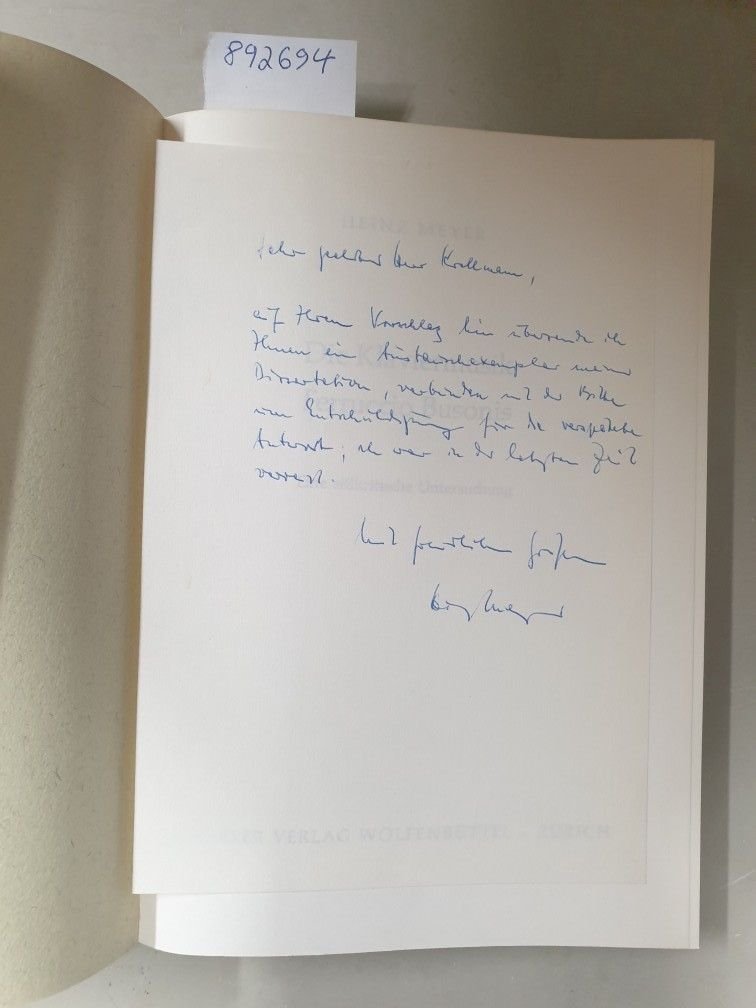 892694
HEINZ MEYER
Sehr geehrter Herr Krellmann,
auf Ihren Vorschlag hin übersende ich
Ihnen ein Austauschexemplar meiner
Die Klaviermusik
Dissertation, verbinden mit der Bitte
Ferruccio Busonis
um Entschuldigung für die verspätete
Antwort; ich war in der letzten Zeit
verreist.
Eine stilkritische Untersuchung
Mit freundlichen Grüßen
Heinz Meyer
VERLAG WOLFENBÜTTEL ZÜRICH